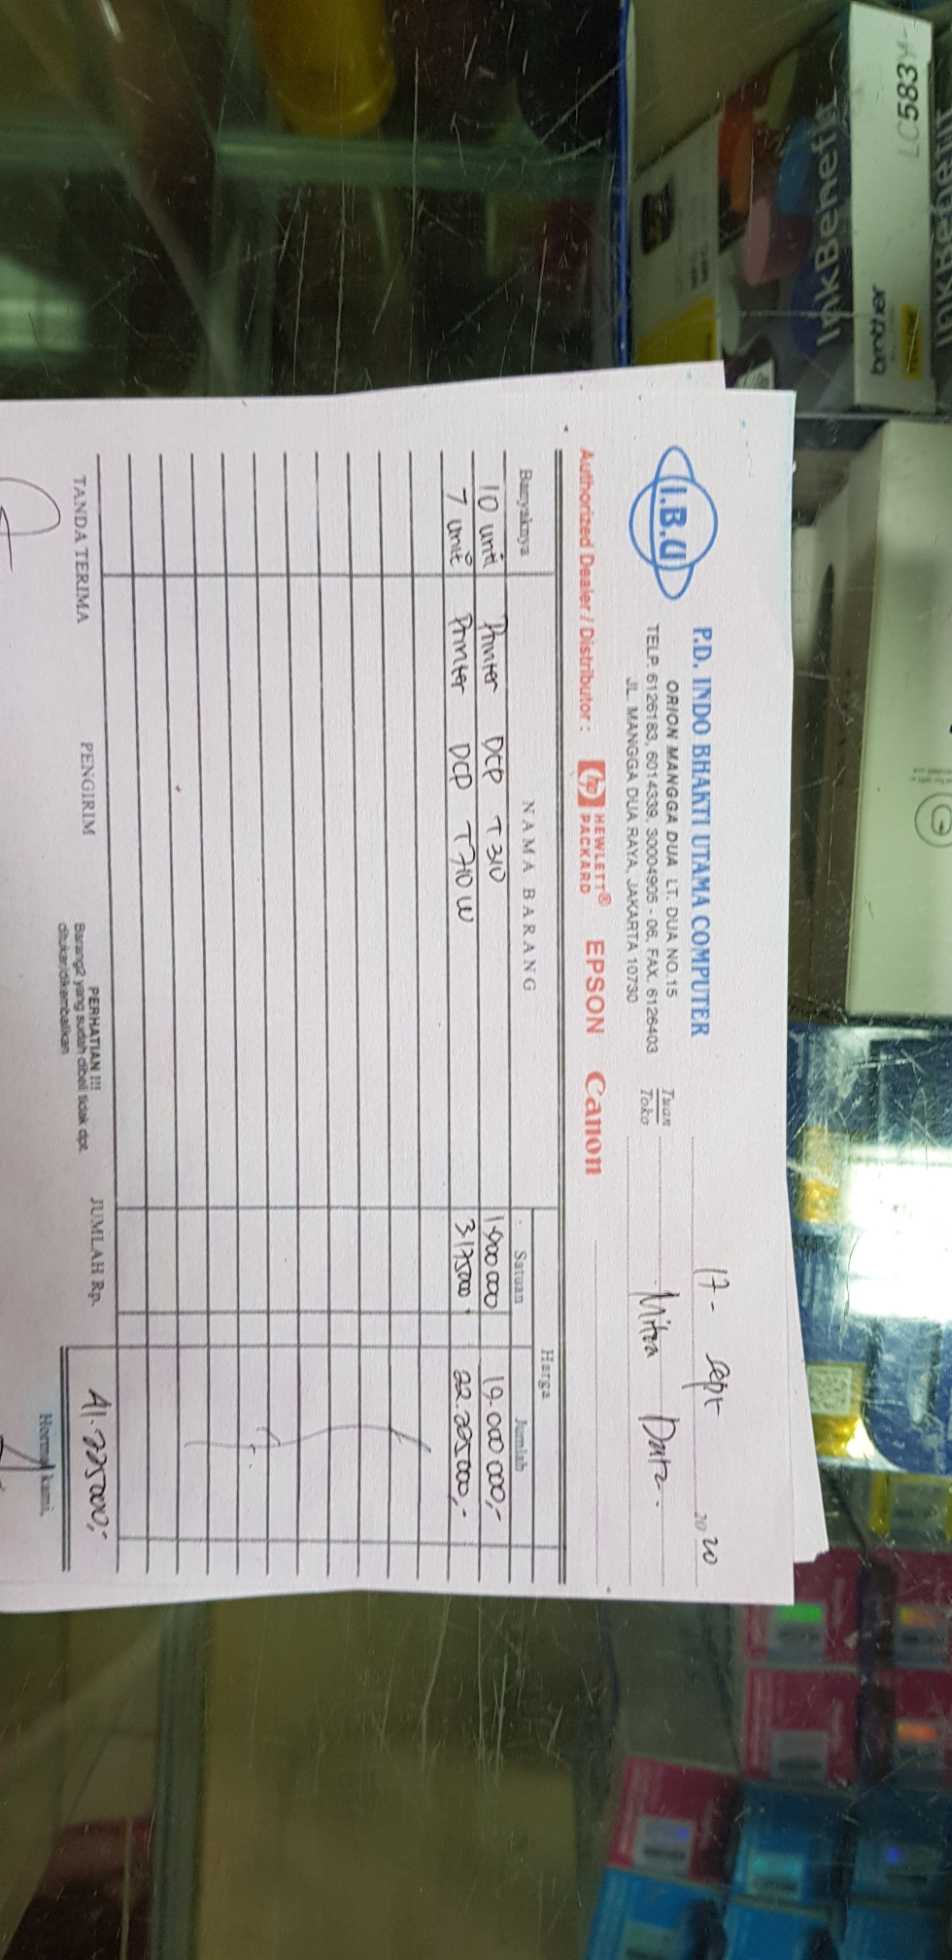 I.B.U
P.D. INDO BHAKTI UTAMA COMPUTER
ORION MANGGA DUA LT. DUA NO.15
TELP. 6126183, 6014339, 30004905 - 06, FAX. 6126403
JL. MANGGA DUA RAYA, JAKARTA 10730
17 - Sept 2020
Tuan
Toko
Mitra Data.
Authorized Dealer / Distributor : hp HEWLETT® PACKARD EPSON Canon
Banyaknya NAMA BARANG Harga
Satuan Jumlah
10 unit Printer DCP T310 1.900 000 19.000 000,-
7 unit Printer DCP T710 W 3.175000 22.225000,-
TANDA TERIMA PENGIRIM JUMLAH Rp. 41.225000,-
PERHATIAN !!!
Barang2 yang sudah dibeli tidak dpt.
ditukar/dikembalikan
Hormat kami,
InkBenefit
brother
LC583